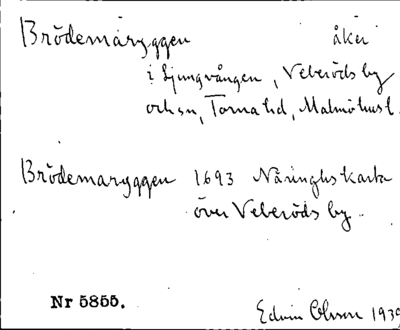 Brödemaryggen åker
i Ljungvången, Veberöds by
och sn, Torna hd, Malmöhus l.
Brödemaryggen 1693 Näringhs karta
över Veberöds by.
Nr 5855.
Edvin Olsson 1939